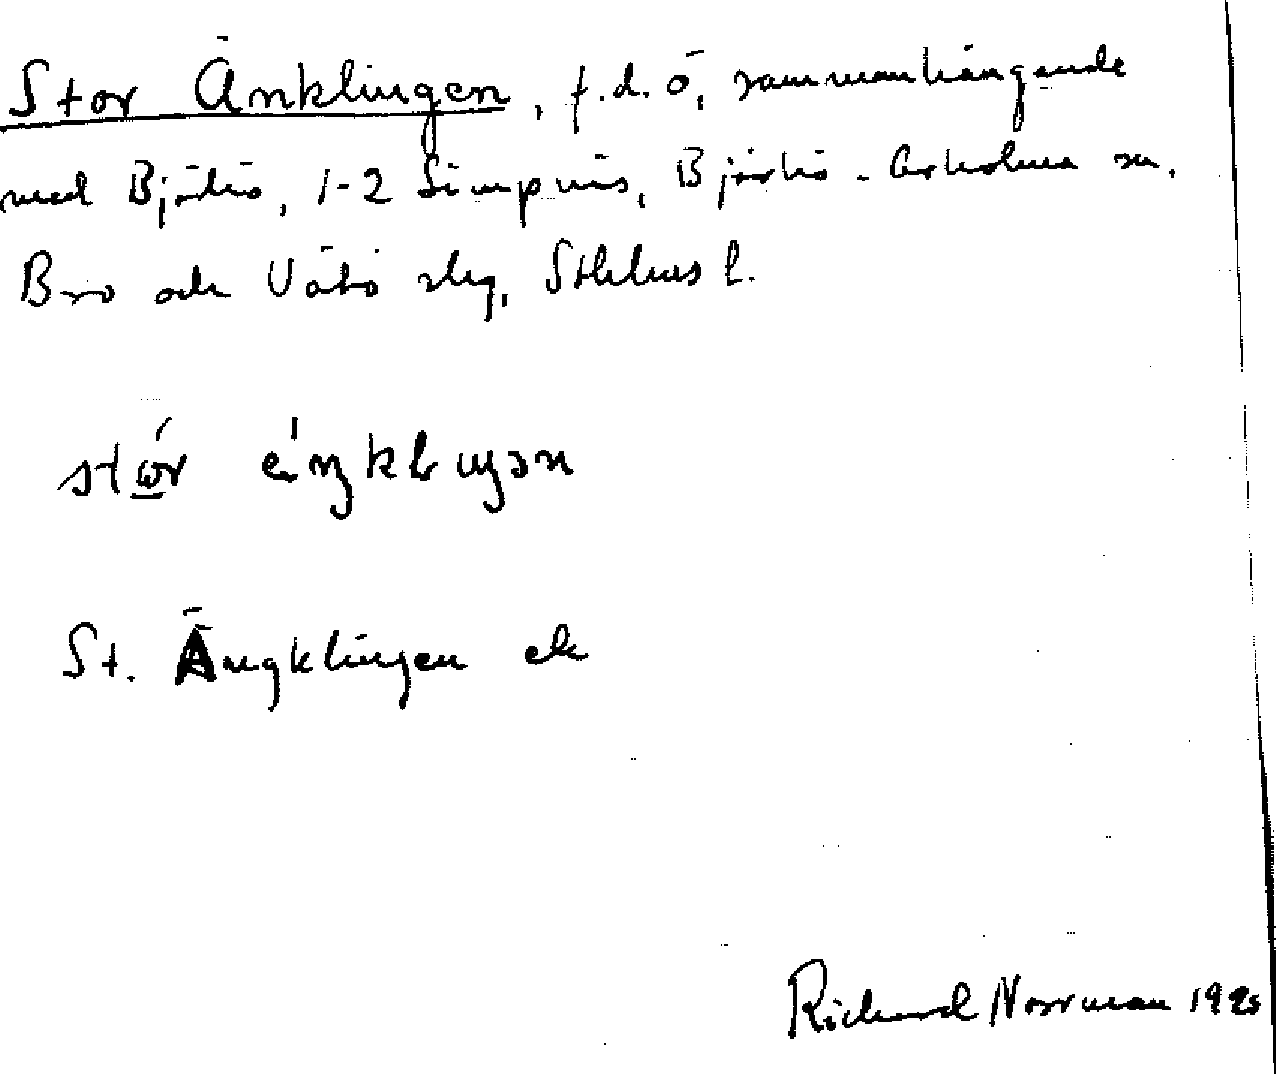 Stor Änklingen, f.d. ö, sammanhängande
med Björkö, 1-2 Simpnäs, Björkö-Arholma sn,
Bro och Vätö slg, Sthlms l.
stór
St. Ängklingen ek
Richard Norrman